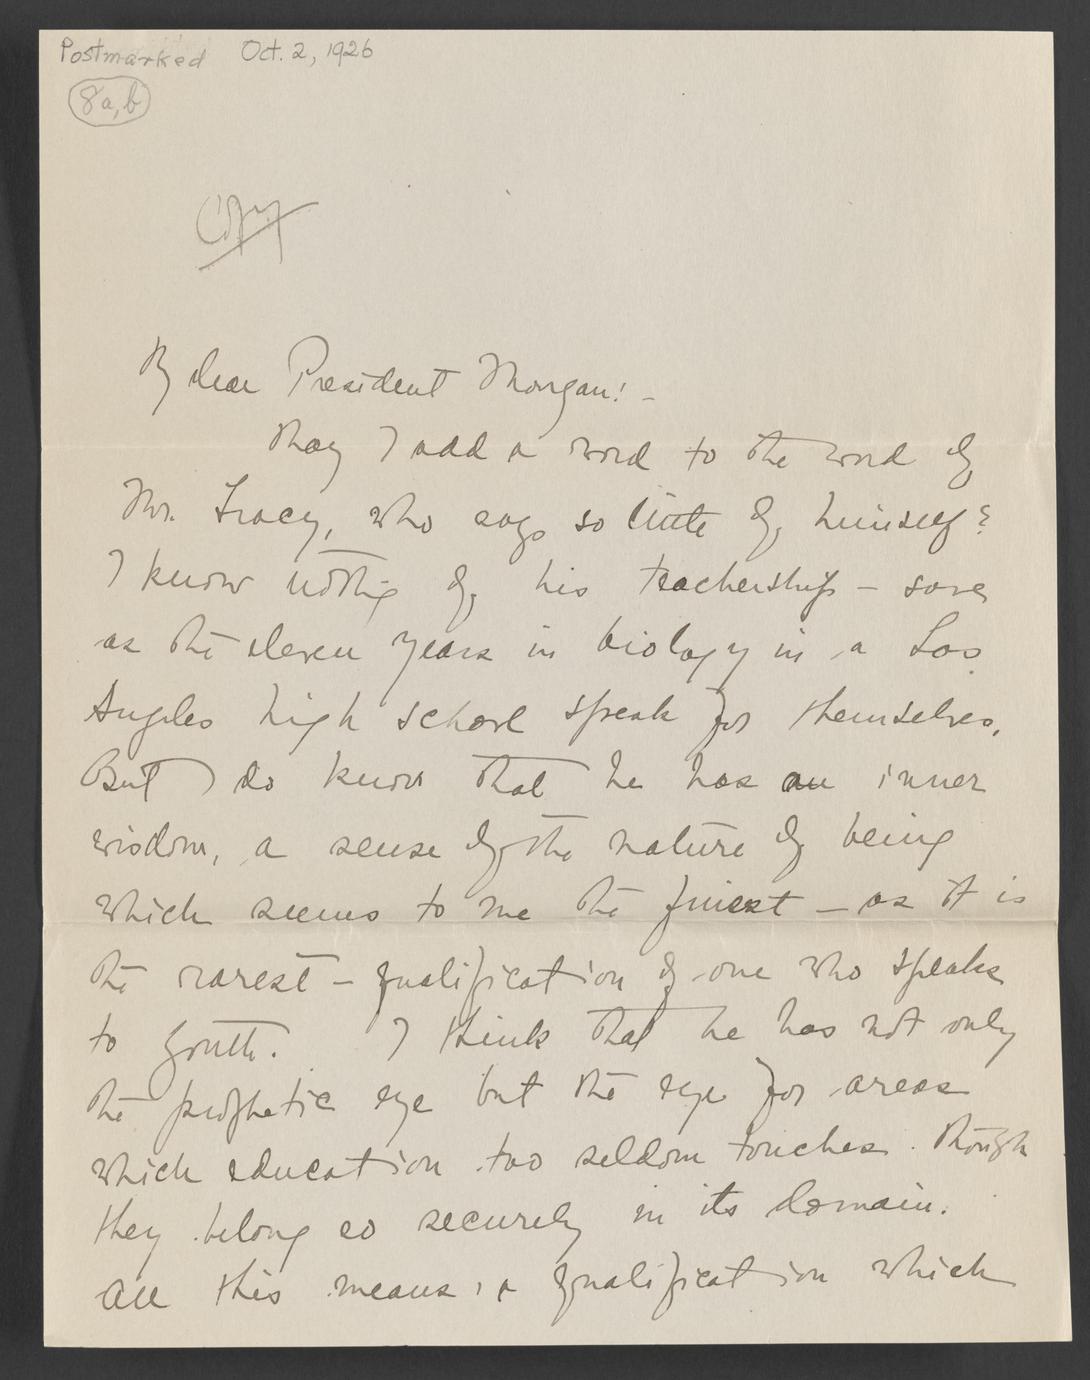 Postmarked Oct. 2, 1926
8a,b
Copy
My dear President Morgan: -
May I add a word to the word of
Mr. Tracy, who says so little of himself?
I know nothing of his teachership - save
as the eleven years in biology in a Los
Angeles high school speak for themselves.
But I do know that he has an inner
wisdom, a sense of the nature of being
which seems to me the finest - as it is
the rarest - qualification of one who speaks
to youth. I think that he has not only
the prophetic eye but the eye for areas
which education too seldom touches. Though
they belong so securely in its domain.
All this means, a qualification which